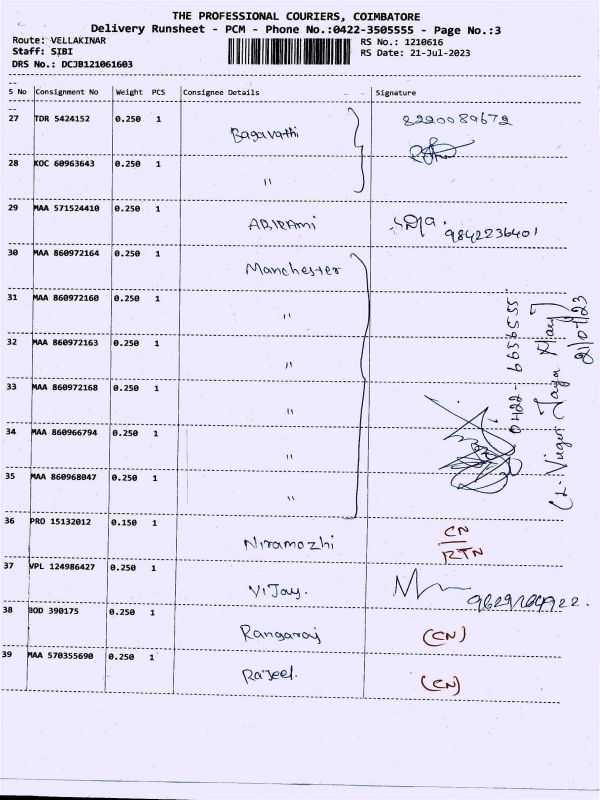 THE PROFESSIONAL COURIERS, COIMBATORE
Delivery Runsheet - PCM - Phone No.:0422-3505555 - Page No.:3
Route: VELLAKINAR RS No.: 1210616
Staff: SIBI RS Date: 21-Jul-2023
DRS No.: DCJB121061603
S No Consignment No Weight PCS Consignee Details Signature
27 TDR 5424152 0.250 1 Bagavathi 8220089672
28 KOC 60963643 0.250 1 "
29 MAA 571524410 0.250 1 ABIRAMI 9842236401
30 MAA 860972164 0.250 1 Manchester
31 MAA 860972160 0.250 1 "
32 MAA 860972163 0.250 1 "
33 MAA 860972168 0.250 1 "
34 MAA 860966794 0.250 1 "
35 MAA 860968047 0.250 1 "
0422-6656555
21/07/23
36 PRO 15132012 0.150 1 Niramozhi CN
RTN
37 VPL 124986427 0.250 1 Vijay.
38 BOD 390175 0.250 1 Rangaraj (CN)
39 MAA 570355690 0.250 1 (CN)